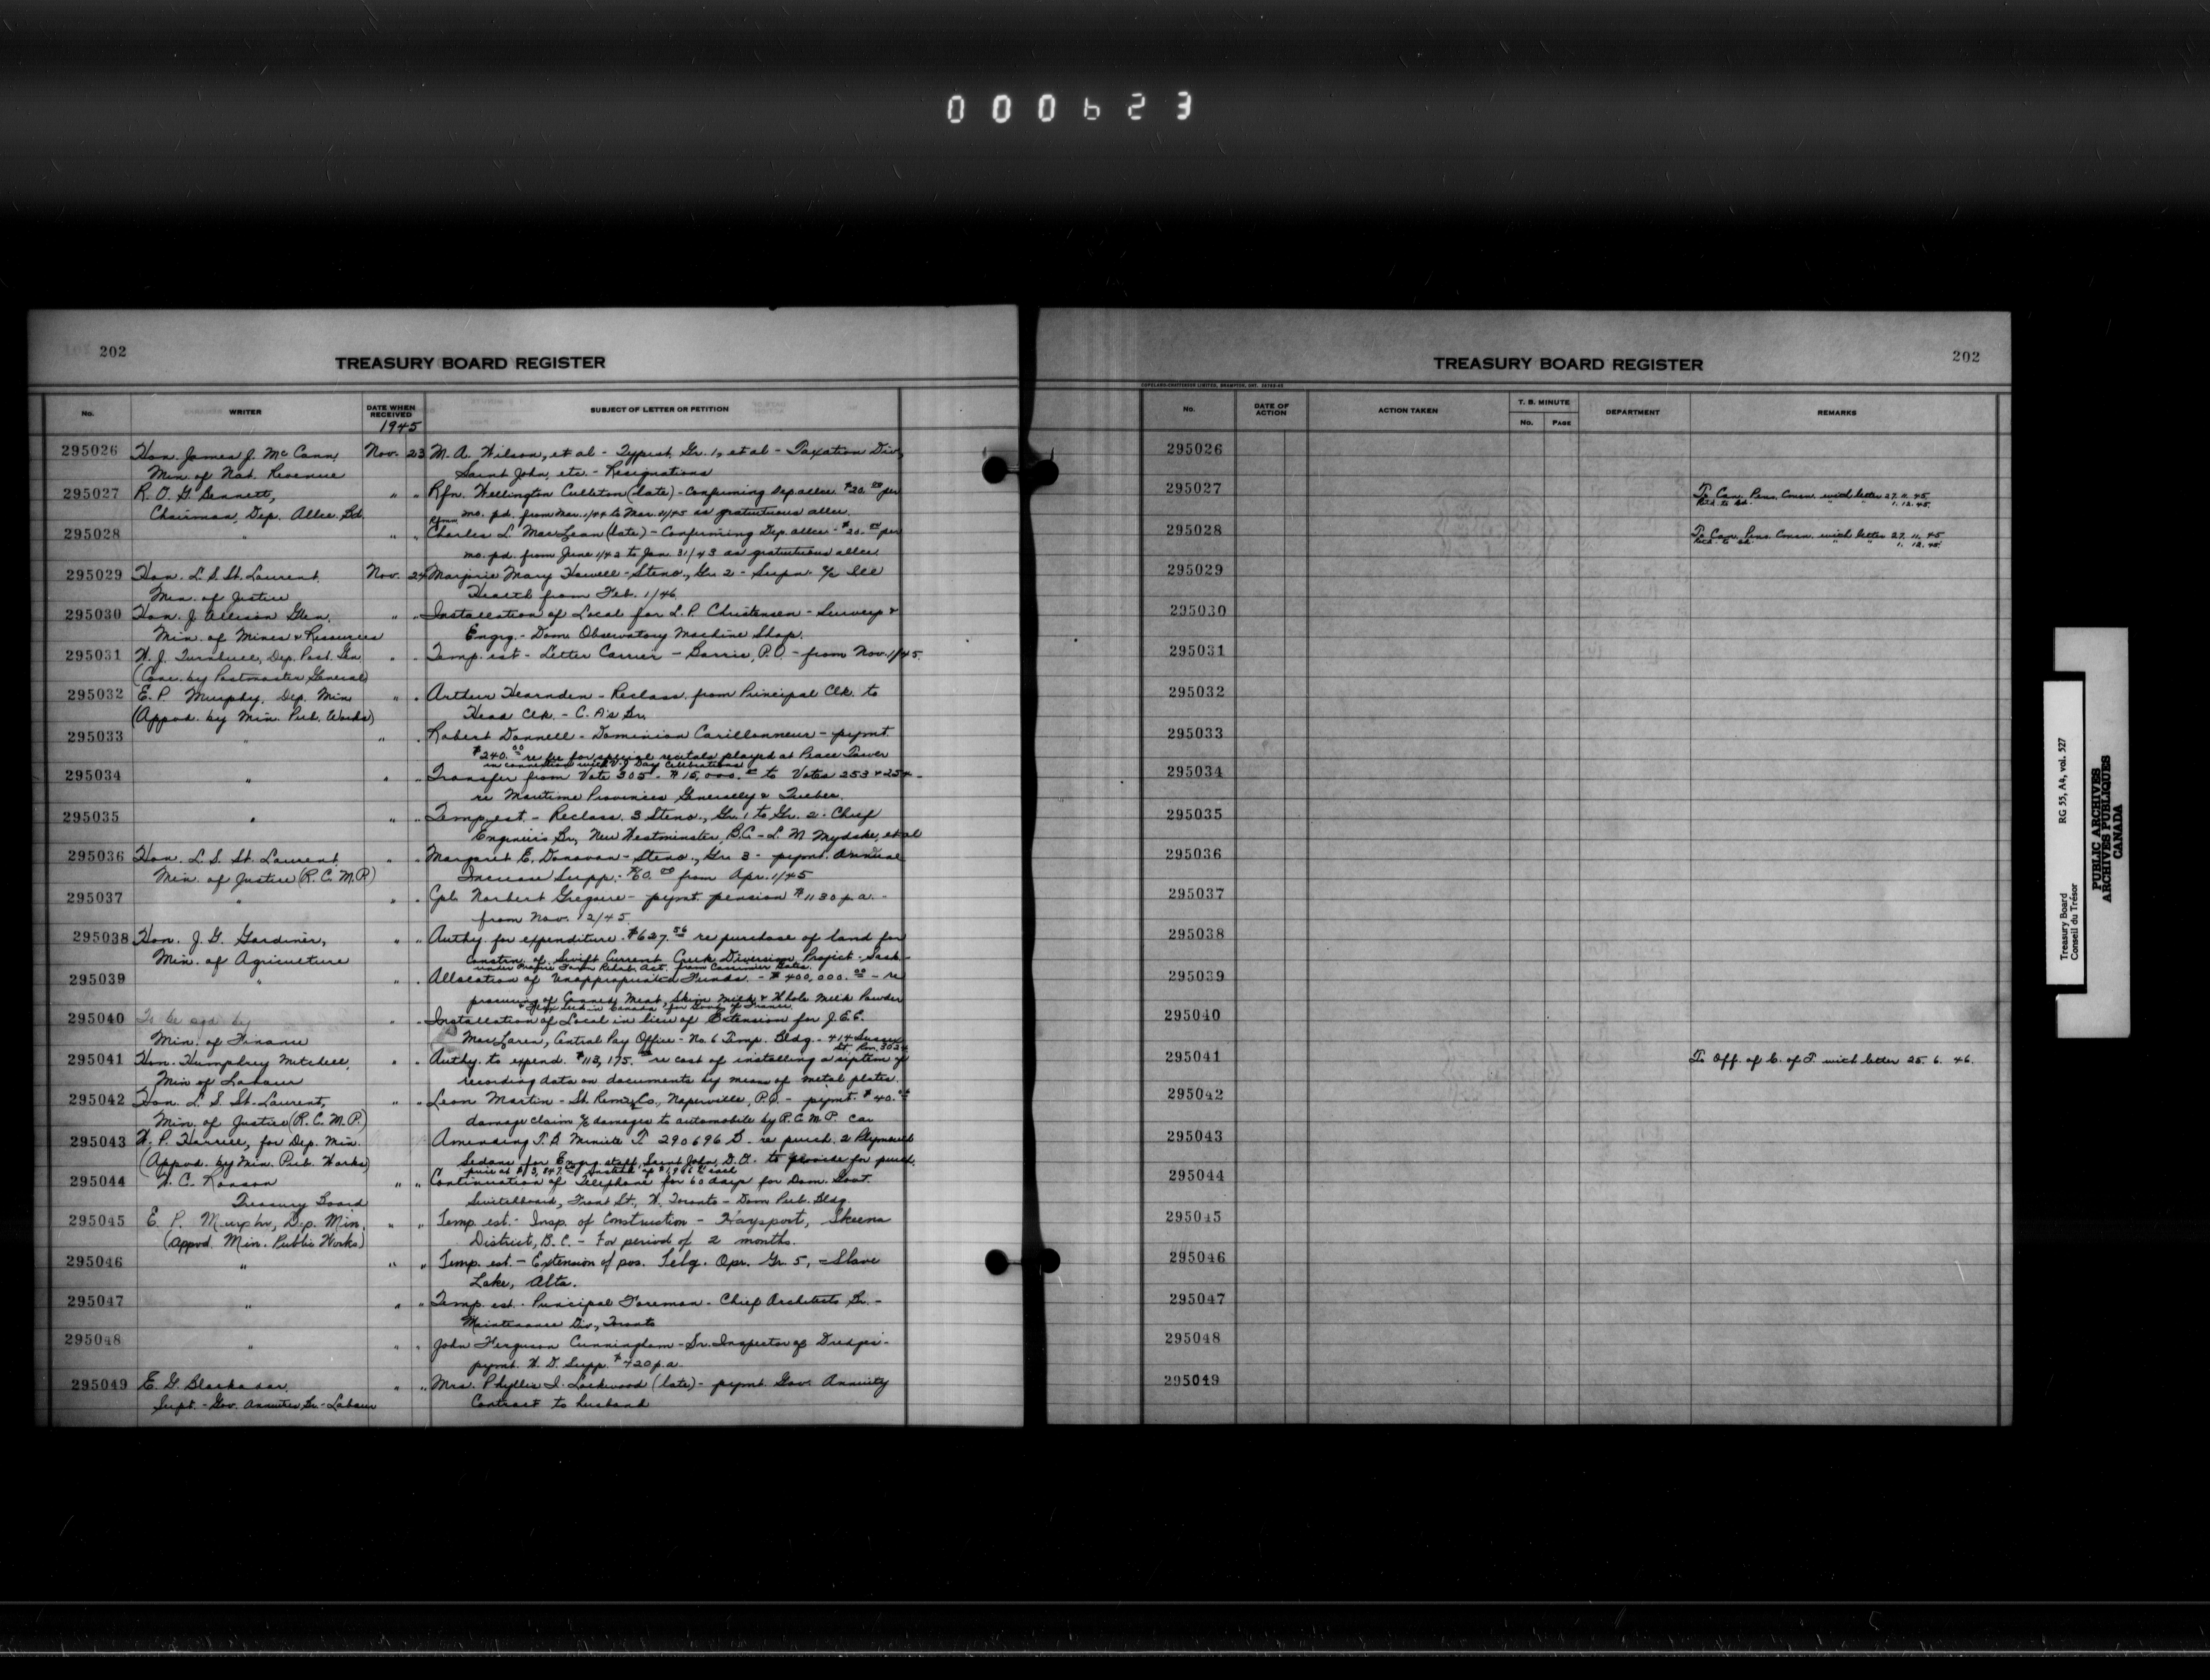 000623
202
TREASURY BOARD REGISTER
No. WRITER DATE WHEN RECEIVED SUBJECT OF LETTER OR PETITION
1945
295026 Hon. James J. McCann, Nov. 23 M. A. Wilson, et al - Typist, Gr. 1, et al - Taxation Div.,
Min. of Nat. Revenue Saint John, etc. - Resignations
295027 R. O. G. Bennett, " " Rfn. Wellington Culleton (late) - Confirming Dep. allce. $20.00 per
Chairman, Dep. Allce. Bd. mo. pd. from Mar. 1/44 to Mar. 31/45 as gratuitous allce.
295028 " " " Charles L. MacLean (late) - Confirming Dep. allce - $20.00 per
mo. pd. from June 1/42 to Jan. 31/43 as gratuitous allce
295029 Hon. L. S. St. Laurent, Nov. 24 Marjorie Mary Howell - Steno., Gr. 2 - Supn. a/c Ill
Min. of Justice Health from Feb. 1/46.
295030 Hon. J. Allison Glen, " " Installation of Local for L. P. Christensen - Surveys &
Min. of Mines & Resources Engrg. - Dom. Observatory Machine Shop.
295031 W. J. Turnbull, Dep. Post. Gen " " Temp. est - Letter Carrier - Barrie, P.O. - from Nov. 1/45.
(Conc. by Postmaster General)
295032 E. P. Murphy, Dep. Min " " Arthur Hearnden - Reclass. from Principal Clk. to
(Appvd. by Min. Pub. Works) Head Clk. - C. A's Br.
295033 " " " Robert Donnell - Dominion Carillonneur - paymt.
$240.00 re fee for special recitals played at Peace Tower
in connection with V.J. Day Celebrations
295034 " " " Transfer from Vote 305 - $15,000.00 to Votes 253 & 254 -
re Maritime Provinces Generally & Quebec.
295035 " " " Temp. est. - Reclass. 3 Steno., Gr. 1 to Gr. 2 - Chief
Engineer's Br., New Westminster, B.C. - L. M. Mydske, et al
295036 Hon. L. S. St. Laurent, " " Margaret E. Donovan - Steno., Gr. 3 - paymt. Annual
Min. of Justice (R.C.M.P.) Increase Supp. - $60.00 from Apr. 1/45
295037 " " " Cpl. Norbert Gregoire - paymt. pension $1130 p.a. -
from Nov. 12/45.
295038 Hon. J. G. Gardiner, " " Authy. for expenditure $627.56 re purchase of land for
Min. of Agriculture constrn. of Swift Current Creek Diversion Project - Sask -
under Prairie Farm Rehab. Act. from
295039 " " " Allocation of Unappropriated Funds. - $400,000.00 - re
procuring of Canned Meat, Skim Milk & Whole Milk Powder
in Canada for Govt. of France
295040 To be sgd by " " Installation of Local in lieu of Extension for J.E.C.
Min. of Finance MacLaren, Central Pay Office - No. 6 Temp. Bldg. - 414 Sussex
St. Rm. 3024
295041 Hon. Humphrey Mitchell, " " Authy. to expend. $113,175.00 re cost of installing a system of
Min of Labour recording data on documents by means of metal plates.
295042 Hon. L. S. St. Laurent, " " Leon Martin - St. Remi, Co., Naperville, P.Q. - paymt. $40.00
Min. of Justice (R.C.M.P.) damage claim a/c damages to automobile by R.C.M.P. car
295043 W. P. Harrell, for Dep. Min. Amending T.B. Minute T. 290696 B. re purch. 2 Plymouth
(Appvd. by Min. Pub. Works) Sedans for Engrg staff, Saint John, D.O. to provide for purch.
295044 W. C. Ronson " " Continuation of Telephone for 60 days for Dom. Govt.
Treasury Board Switchboard, Front St., W. Toronto - Dom Pub. Bldg.
295045 E. P. Murphy, Dep. Min. " " Temp. est. - Insp. of Construction - Haysport, Skeena
(Appvd. Min. Public Works) District, B.C. - For period of 2 months.
295046 " " " Temp. est. - Extension of pos. Telg. Opr. Gr. 5, - Slave
Lake, Alta.
295047 " " " Temp. est. - Principal Foreman - Chief Architects Br. -
Maintenance Div., Toronto
295048 " " " John Ferguson Cunningham - Sr. Inspector of Dredges -
paymt. W. D. Supp. $420 p.a.
295049 E. G. Blackadar, " " Mrs. Phyllis I. Lockwood (late) - paymt. Gov. Annuity
Supt. - Gov. Annuities Br. - Labour Contract to husband
TREASURY BOARD REGISTER
202
No. DATE OF ACTION ACTION TAKEN T. B. MINUTE No. PAGE DEPARTMENT REMARKS
295026
295027 To Can. Pens. Comm. with letter 27.11.45
Retd. to Bd. " " 1.12.45.
295028 To Can. Pens. Comm. with letter 27.11.45
Retd. to Bd. " " 1.12.45.
295029
295030
295031
295032
295033
295034
295035
295036
295037
295038
295039
295040
295041 To Off. of C. of T. with letter 25.6.46.
295042
295043
295044
295045
295046
295047
295048
295049
Treasury Board RG 55, A4, vol. 527
Conseil du Trésor
PUBLIC ARCHIVES
ARCHIVES PUBLIQUES
CANADA